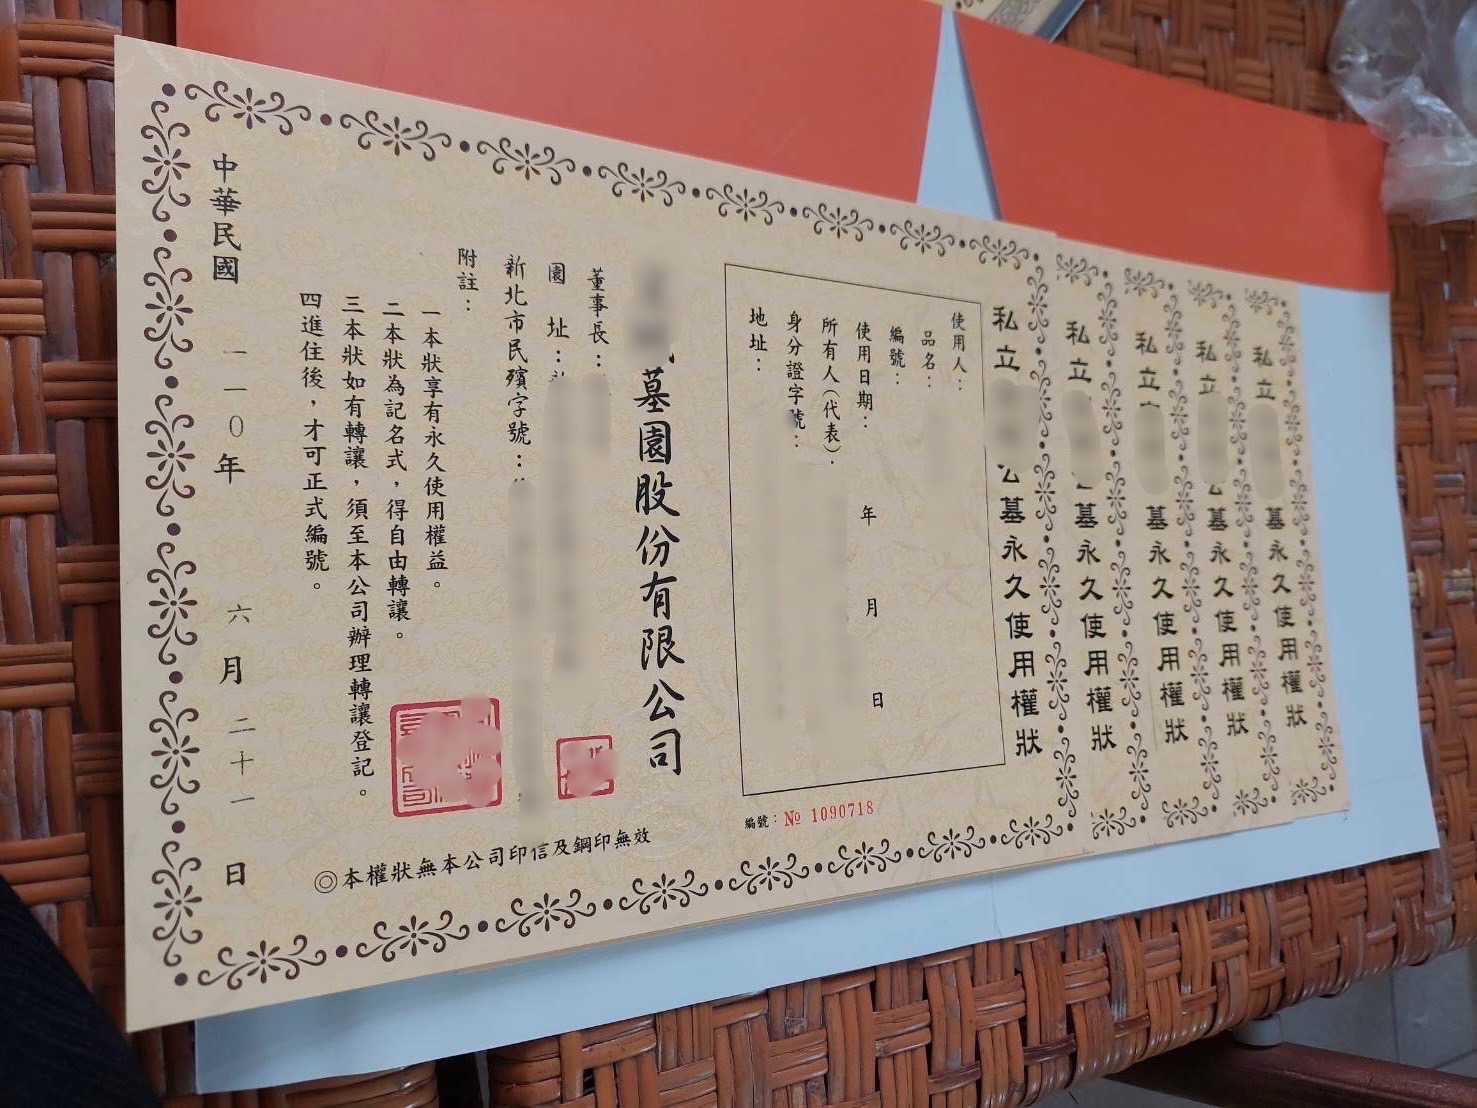 私立
公墓永久使用權狀
使用人：
品名：
編號：
使用日期： 年 月 日
所有人（代表）
身分證字號：
地址：
編號：№ 1090718
墓園股份有限公司
董事長：
園 址：
新北市民殯字號：
附註：
一本狀享有永久使用權益。
二本狀為記名式，得自由轉讓。
三本狀如有轉讓，須至本公司辦理轉讓登記。
四進住後，才可正式編號。
中華民國 一一０年 六月 二十一日
◎本權狀無本公司印信及鋼印無效
私立
墓永久使用權狀
私立
墓永久使用權狀
私立
墓永久使用權狀
私立
墓永久使用權狀